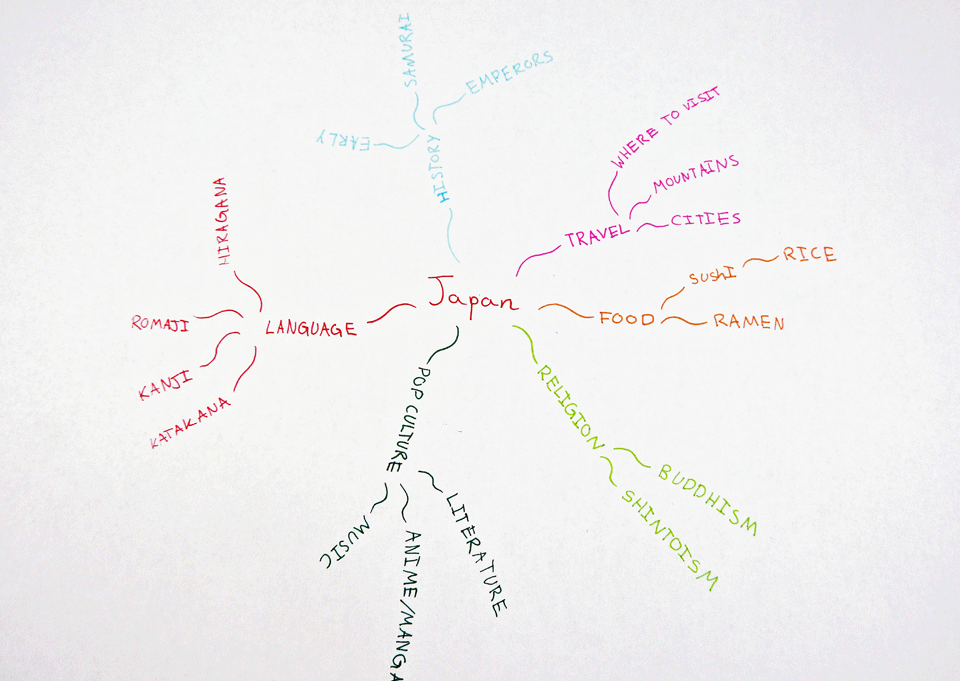 Japan
HISTORY
EARLY
SAMURAI
EMPERORS
TRAVEL
WHERE TO VISIT
MOUNTAINS
CITIES
FOOD
SUSHI
RICE
RAMEN
RELIGION
BUDDHISM
SHINTOISM
POP CULTURE
LITERATURE
ANIME/MANGA
MUSIC
LANGUAGE
HIRAGANA
ROMAJI
KANJI
KATAKANA